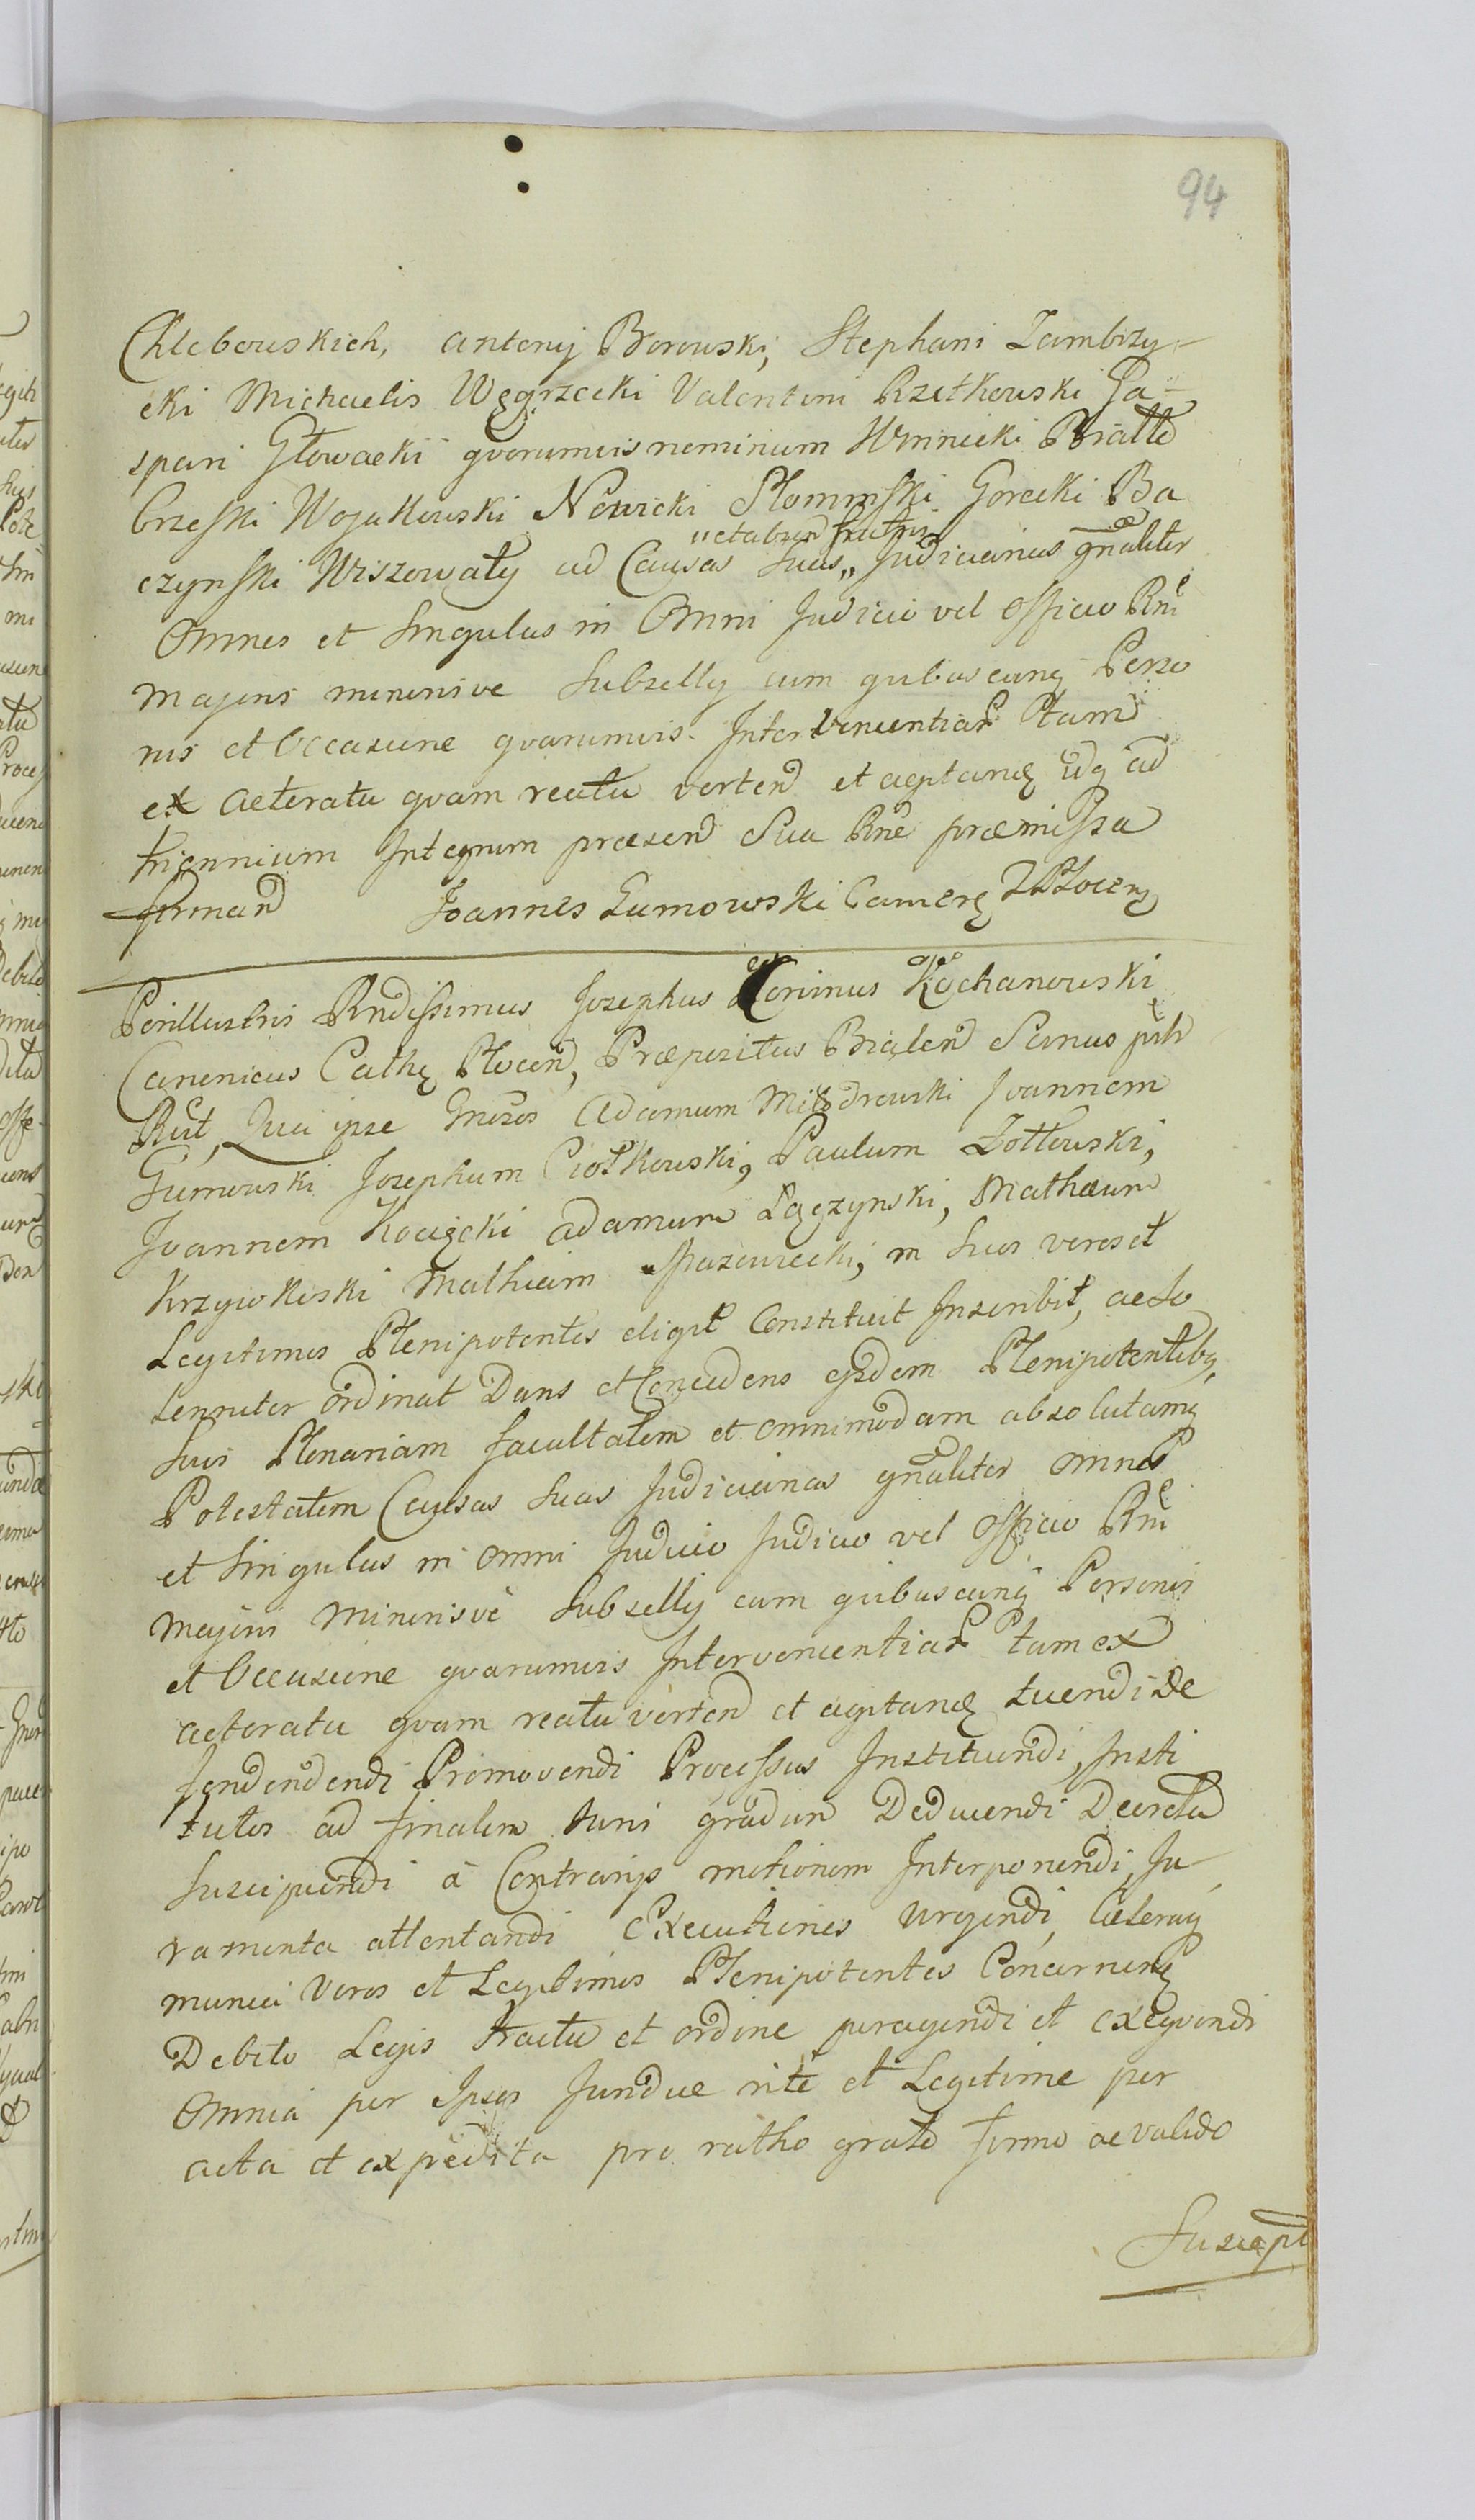 94
Chlebowskich, antonij Borowski, Stephani Zambrzy-
cki Michaelis Węgrzecki Valentini Rzetkowski Ga-
spari Głowacki qvorumvis nominum Winnicki
brzeski Wojakowski Nowicki Słominski Gorecki Ba
"et aliorum fratrum
czynski Wiszowaty ad Causas suas " Judiciarias gñaliter
Omnes et singulas in Omni Judicio vel officio Rni
majoris minorisve Subsellij cum quibuscunq Perso
nis et Occasione qvarumvis Intervenientiar tam
ex actoratu qvam reatu verten et agitanq idq ad
triennium Integrum praesen Sua Rne praemissa
firman Joannes Gumowski Camerq T Plocenq
Perillustris Rndissimus Josephus Corvinus Kochanowski
Canonicus Cathq Plocen, Praepositus Bialen Sanus
Rect, Quia ipse Gnosos Adamum Modrowski Joannem
Gumowski Josephum Ciołkowski, Paulum Zołtowski,
Joannem Kocięcki adamum Łączynski, Mathaeum
Krzywkoski Mathiam Spazowecki, in suos veros et
Legitimos Plenipotentes eligit Constituit Inscribit, ac So
lenniter ordinat Dans et Concedens ejsdem Plenipotentibq
suis Plenariam facultatem et omnimodam absolutamq
Potestatem Causas suas Judiciarias gñaliter omnes
et singulas in omni Judicio Judicio vel officio Rni
Majoris Minorisve Subsellij cum quibuscunq Personis
et Occasione qvarumvis Intervenientiar tam ex
actoratu qvam reatu verten et agitanq tuendi De
fendendendi Promovendi Processus Instituendi, Insti
tutos ad finalem Juris gradum Deducendi Decreta
suscipiendi á Contrarijs motionem Interponendi Ju-
ramenta attentandi Executiones urgendi, Caeteraq
munia Veros et Legitimos Plenipotentes Concernenq
Debito Legis tractu et ordine peragendi et exeqvendi
Omnia per Ipsos Jundue rite et Legitime per
acta et expedita pro ratho grato firmo ac valido
Suscept